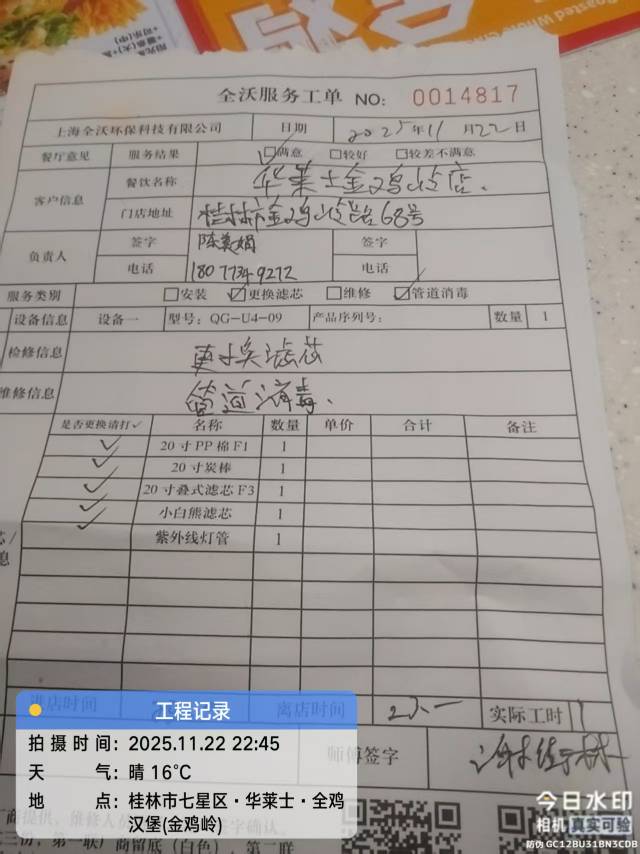 全沃服务工单 NO: 0014817
上海全沃环保科技有限公司 日期 2025年11月22日
餐厅意见 服务结果 ☑满意 □较好 □较差不满意
客户信息 餐饮名称 华莱士金鸡岭店
门店地址 桂林市金鸡岭路68号
负责人 签字 签字
电话 18077349272 电话
服务类别 □安装 ☑更换滤芯 □维修 ☑管道消毒
设备信息 设备一 型号: QG-U4-09 产品序列号: 数量 1
检修信息 更换滤芯
维修信息 管道消毒.
是否更换请打✓ 名称 数量 单价 合计 备注
✓ 20寸PP棉F1 1
✓ 20寸炭棒 1
✓ 20寸叠式滤芯F3 1
✓ 小白熊滤芯 1
✓ 紫外线灯管 1
进店时间 离店时间 实际工时
师傅签字
工程记录
拍摄时间: 2025.11.22 22:45
天气: 晴 16°C
地点: 桂林市七星区·华莱士·全鸡汉堡(金鸡岭)
今日水印
相机 真实可验
防伪 GC12BU31BN3CDB